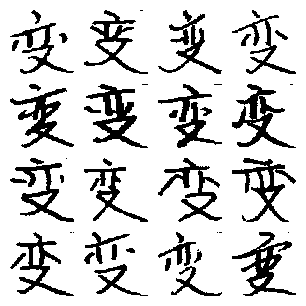 变变变变
变变变变
变变变变
变变变变